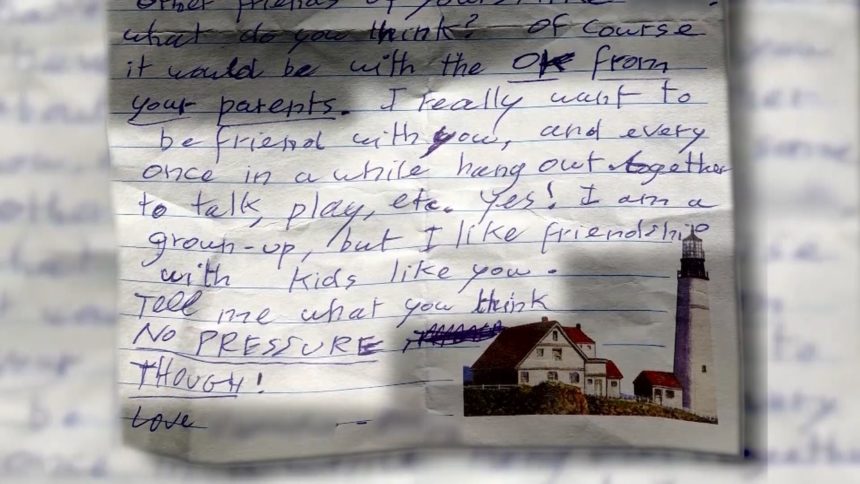 other friends of yours
what do you think? Of course
it would be with the OK from
your parents. I really want to
be friend with you, and every
once in a while hang out together
to talk, play, etc. Yes! I am a
grown-up, but I like friendship
with kids like you.
Tell me what you think
NO PRESSURE
THOUGH!
Love